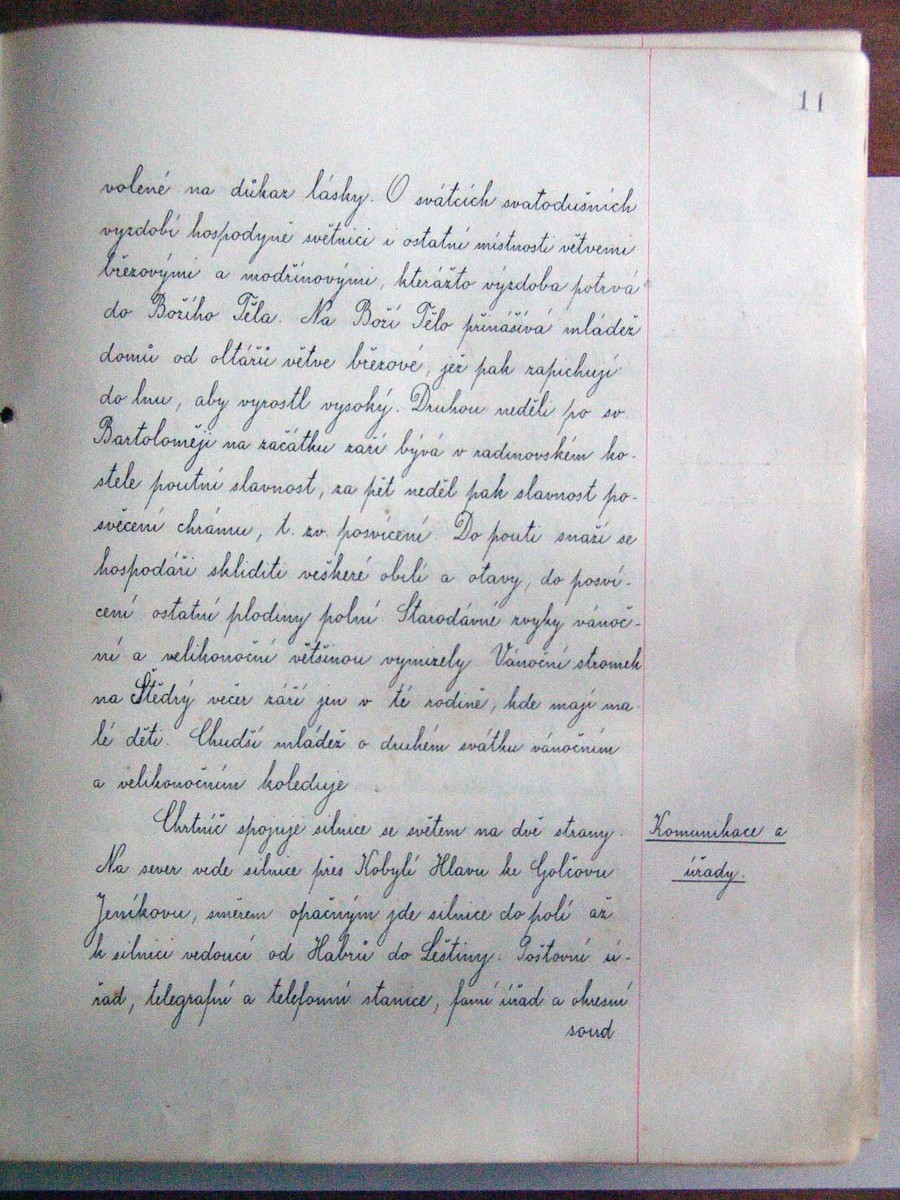 11
volené na důkaz lásky. O svátcích svatodušních
vyzdobí hospodyně světnici i ostatní místnosti větvemi
březovými a modřínovými, kterážto výzdoba potrvá
do Božího Těla. Na Boží Tělo přinášívá mládež
domů od oltářů větve březové, jež pak zapichují
do lnu, aby vyrostl vysoký. Druhou neděli po sv.
Bartoloměji na začátku září bývá v radinovském ko-
stele poutní slavnost, za pět neděl pak slavnost po-
svěcení chrámu, t. zv. posvícení. Do pouti snaží se
hospodáři skliditi veškeré obilí a otavy, do posví-
cení ostatní plodiny polní. Starodávné zvyky vánoč-
ní a velikonoční většinou vymizely. Vánoční stromek
na Štědrý večer září jen v té rodině, kde mají ma-
lé děti. Chudší mládež o druhém svátku vánočním
a velikonočním koleduje
Chrtníč spojuje silnice se světem na dvě strany.
Komunikace a
úřady.
Na sever vede silnice přes Kobylí Hlavu ke Golčovu
Jeníkovu, směrem opačným jde silnice do polí až
k silnici vedoucí od Habrů do Leštiny. Poštovní ú-
řad, telegrafní a telefonní stanice, farní úřad a okresní
soud